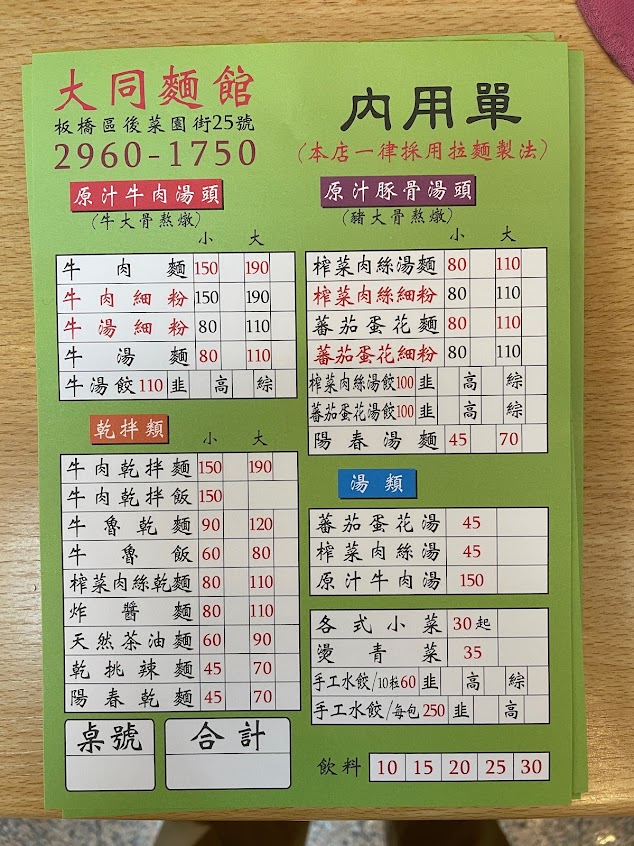 大同麵館
板橋區後菜園街25號
2960-1750
內用單
(本店一律採用拉麵製法)
原汁牛肉湯頭
(牛大骨熬燉)
小 大
牛肉麵 150 190
牛肉細粉 150 190
牛湯細粉 80 110
牛湯麵 80 110
牛湯餃110 韭 高 綜
乾拌類
小 大
牛肉乾拌麵 150 190
牛肉乾拌飯 150
牛魯乾麵 90 120
牛魯飯 60 80
榨菜肉絲乾麵 80 110
炸醬麵 80 110
天然茶油麵 60 90
乾挑辣麵 45 70
陽春乾麵 45 70
桌號
合計
原汁豚骨湯頭
(豬大骨熬燉)
小 大
榨菜肉絲湯麵 80 110
榨菜肉絲細粉 80 110
蕃茄蛋花麵 80 110
蕃茄蛋花細粉 80 110
榨菜肉絲湯餃100 韭 高 綜
蕃茄蛋花湯餃100 韭 高 綜
陽春湯麵 45 70
湯類
蕃茄蛋花湯 45
榨菜肉絲湯 45
原汁牛肉湯 150
各式小菜 30起
燙青菜 35
手工水餃/10粒60 韭 高 綜
手工水餃/每包250 韭 高
飲料 10 15 20 25 30